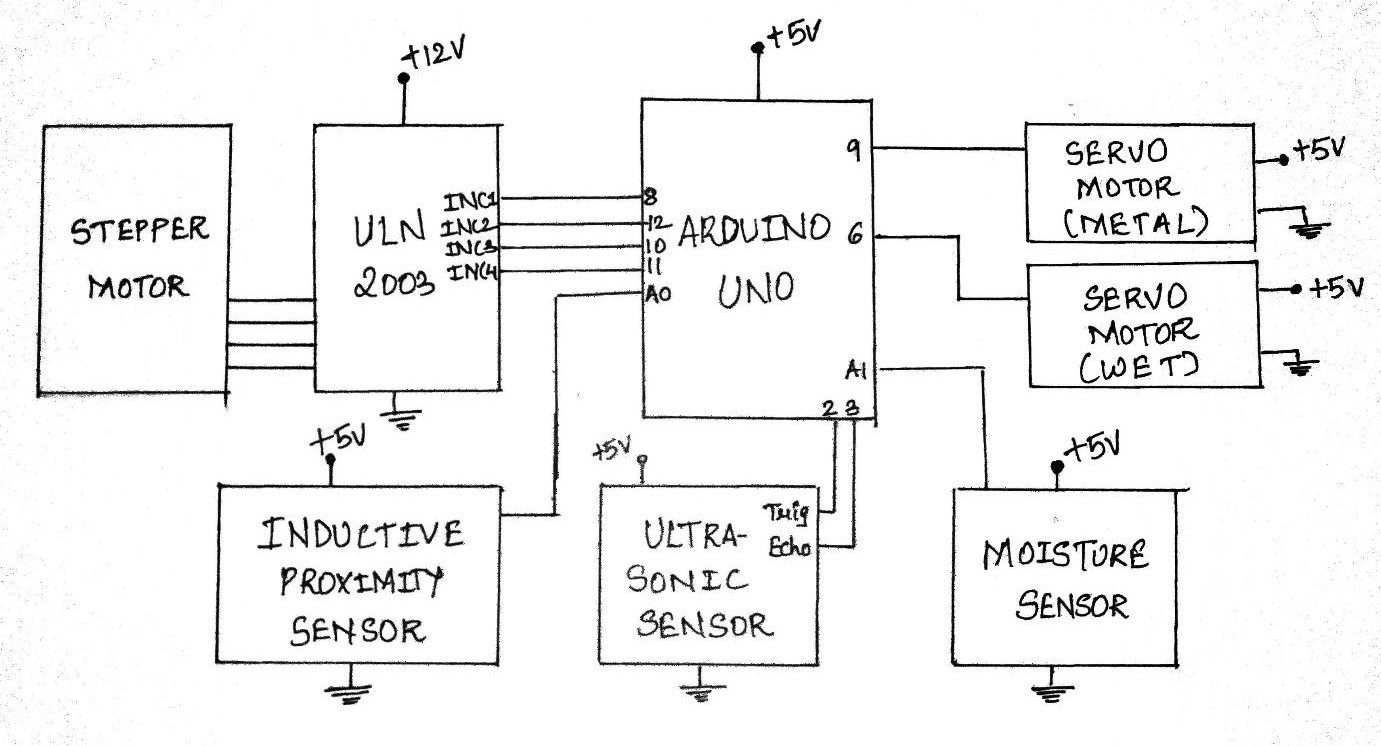 +12V
+5V
STEPPER
MOTOR
ULN
2003
INC1
INC2
INC3
INC4
8
12
10
11
A0
ARDUINO
UNO
9
6
A1
2 3
SERVO
MOTOR
(METAL)
+5V
SERVO
MOTOR
(WET)
+5V
+5V
INDUCTIVE
PROXIMITY
SENSOR
+5V
ULTRA-
SONIC
SENSOR
Trig
Echo
+5V
MOISTURE
SENSOR